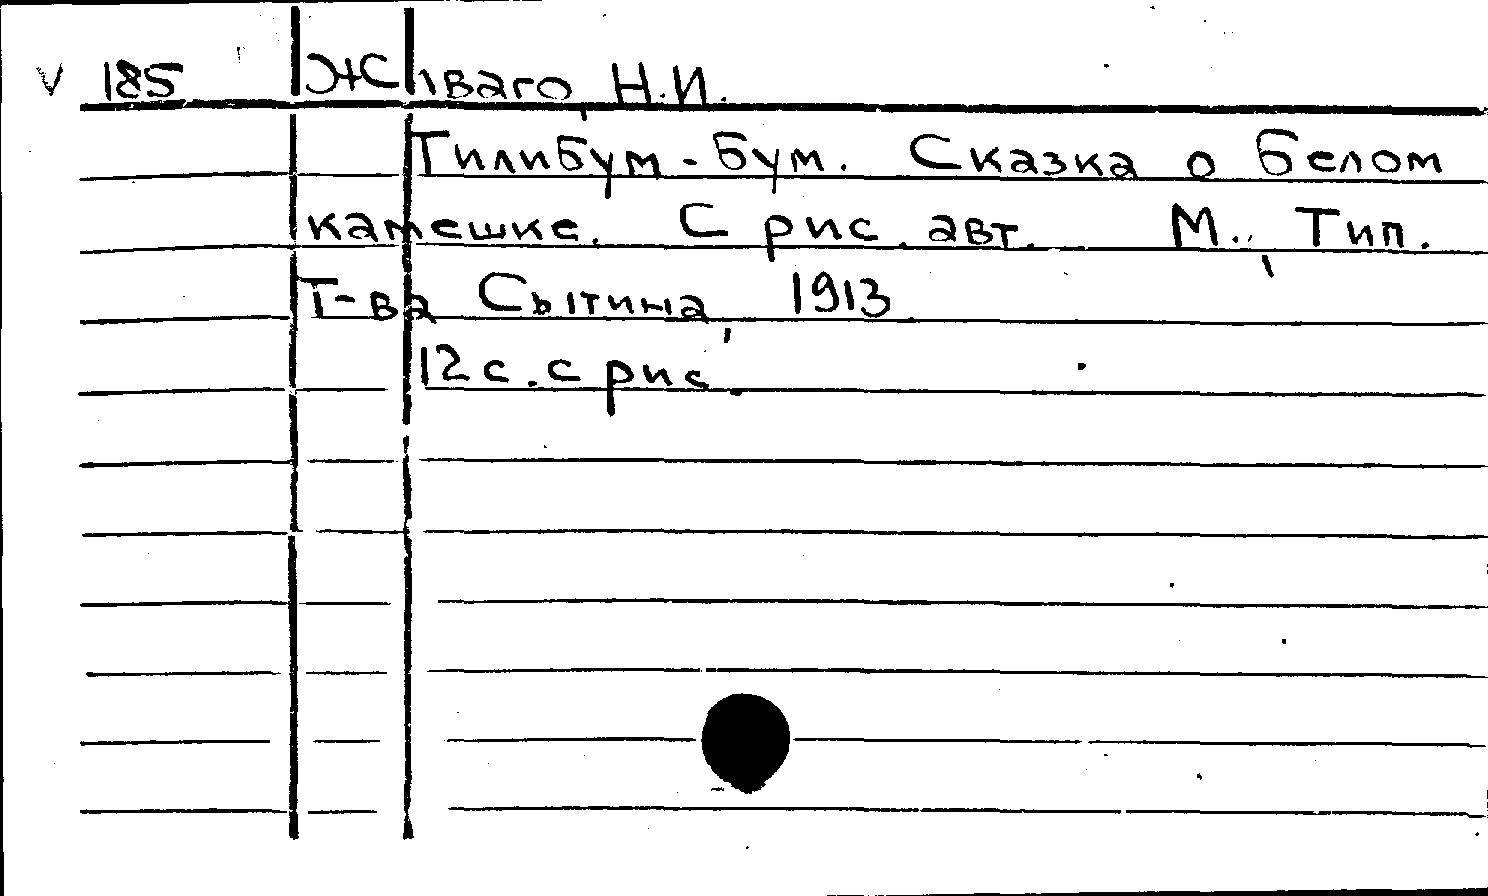 V 185 Живаго, Н.И.
Тилибум-бум. Сказка о белом
камешке. С рис. авт. М., Тип.
Т-ва Сытина, 1913
12 с. с рис.